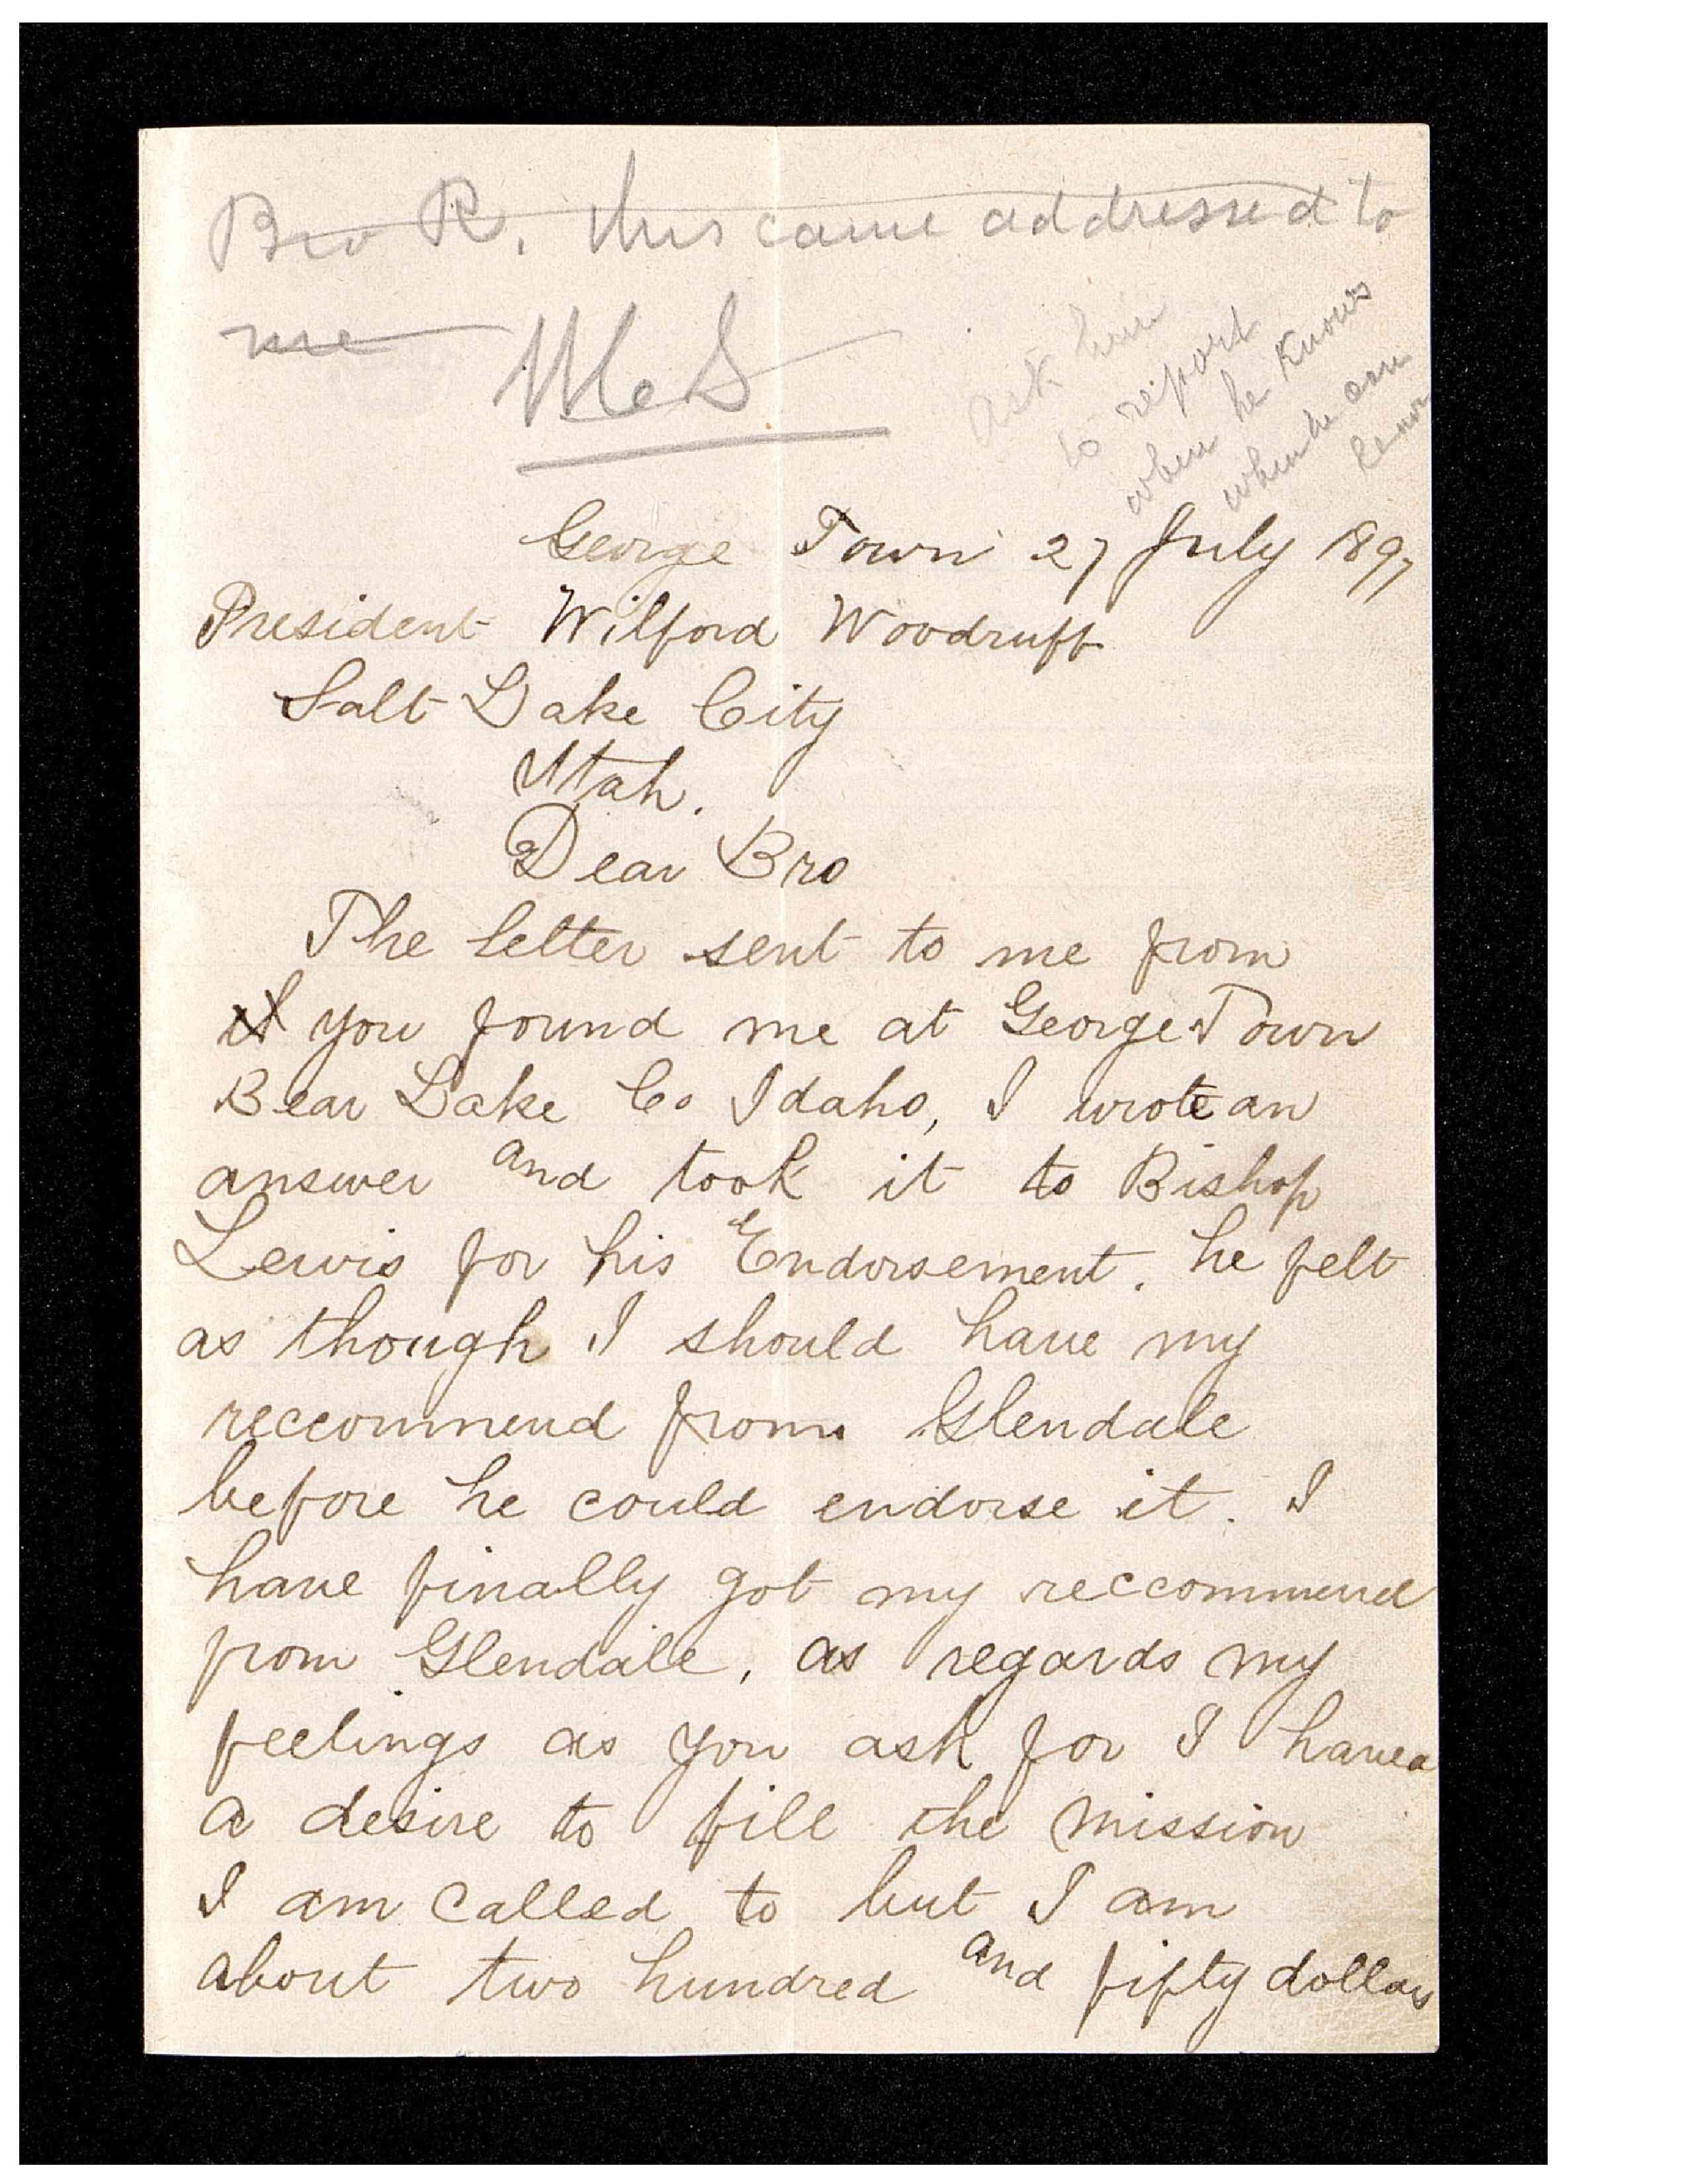 Bro R. this came addressed to
me
ask him
to report
when he knows
when he can
leave
George Town 27 July 1897
President Wilford Woodruff
Salt Lake City
Utah.
Dear Bro
The letter sent to me from
you found me at George Town
Bear Lake Co Idaho, I wrote an
answer and took it to Bishop
Lewis for his Endorsement. he felt
as though I should have my
reccommend from Glendale
before he could endorse it. I
have finally got my reccommend
from Glendale, as regards my
feelings as you ask for I have a
a desire to fill the mission
I am called to but I am
about two hundred and fifty dollars